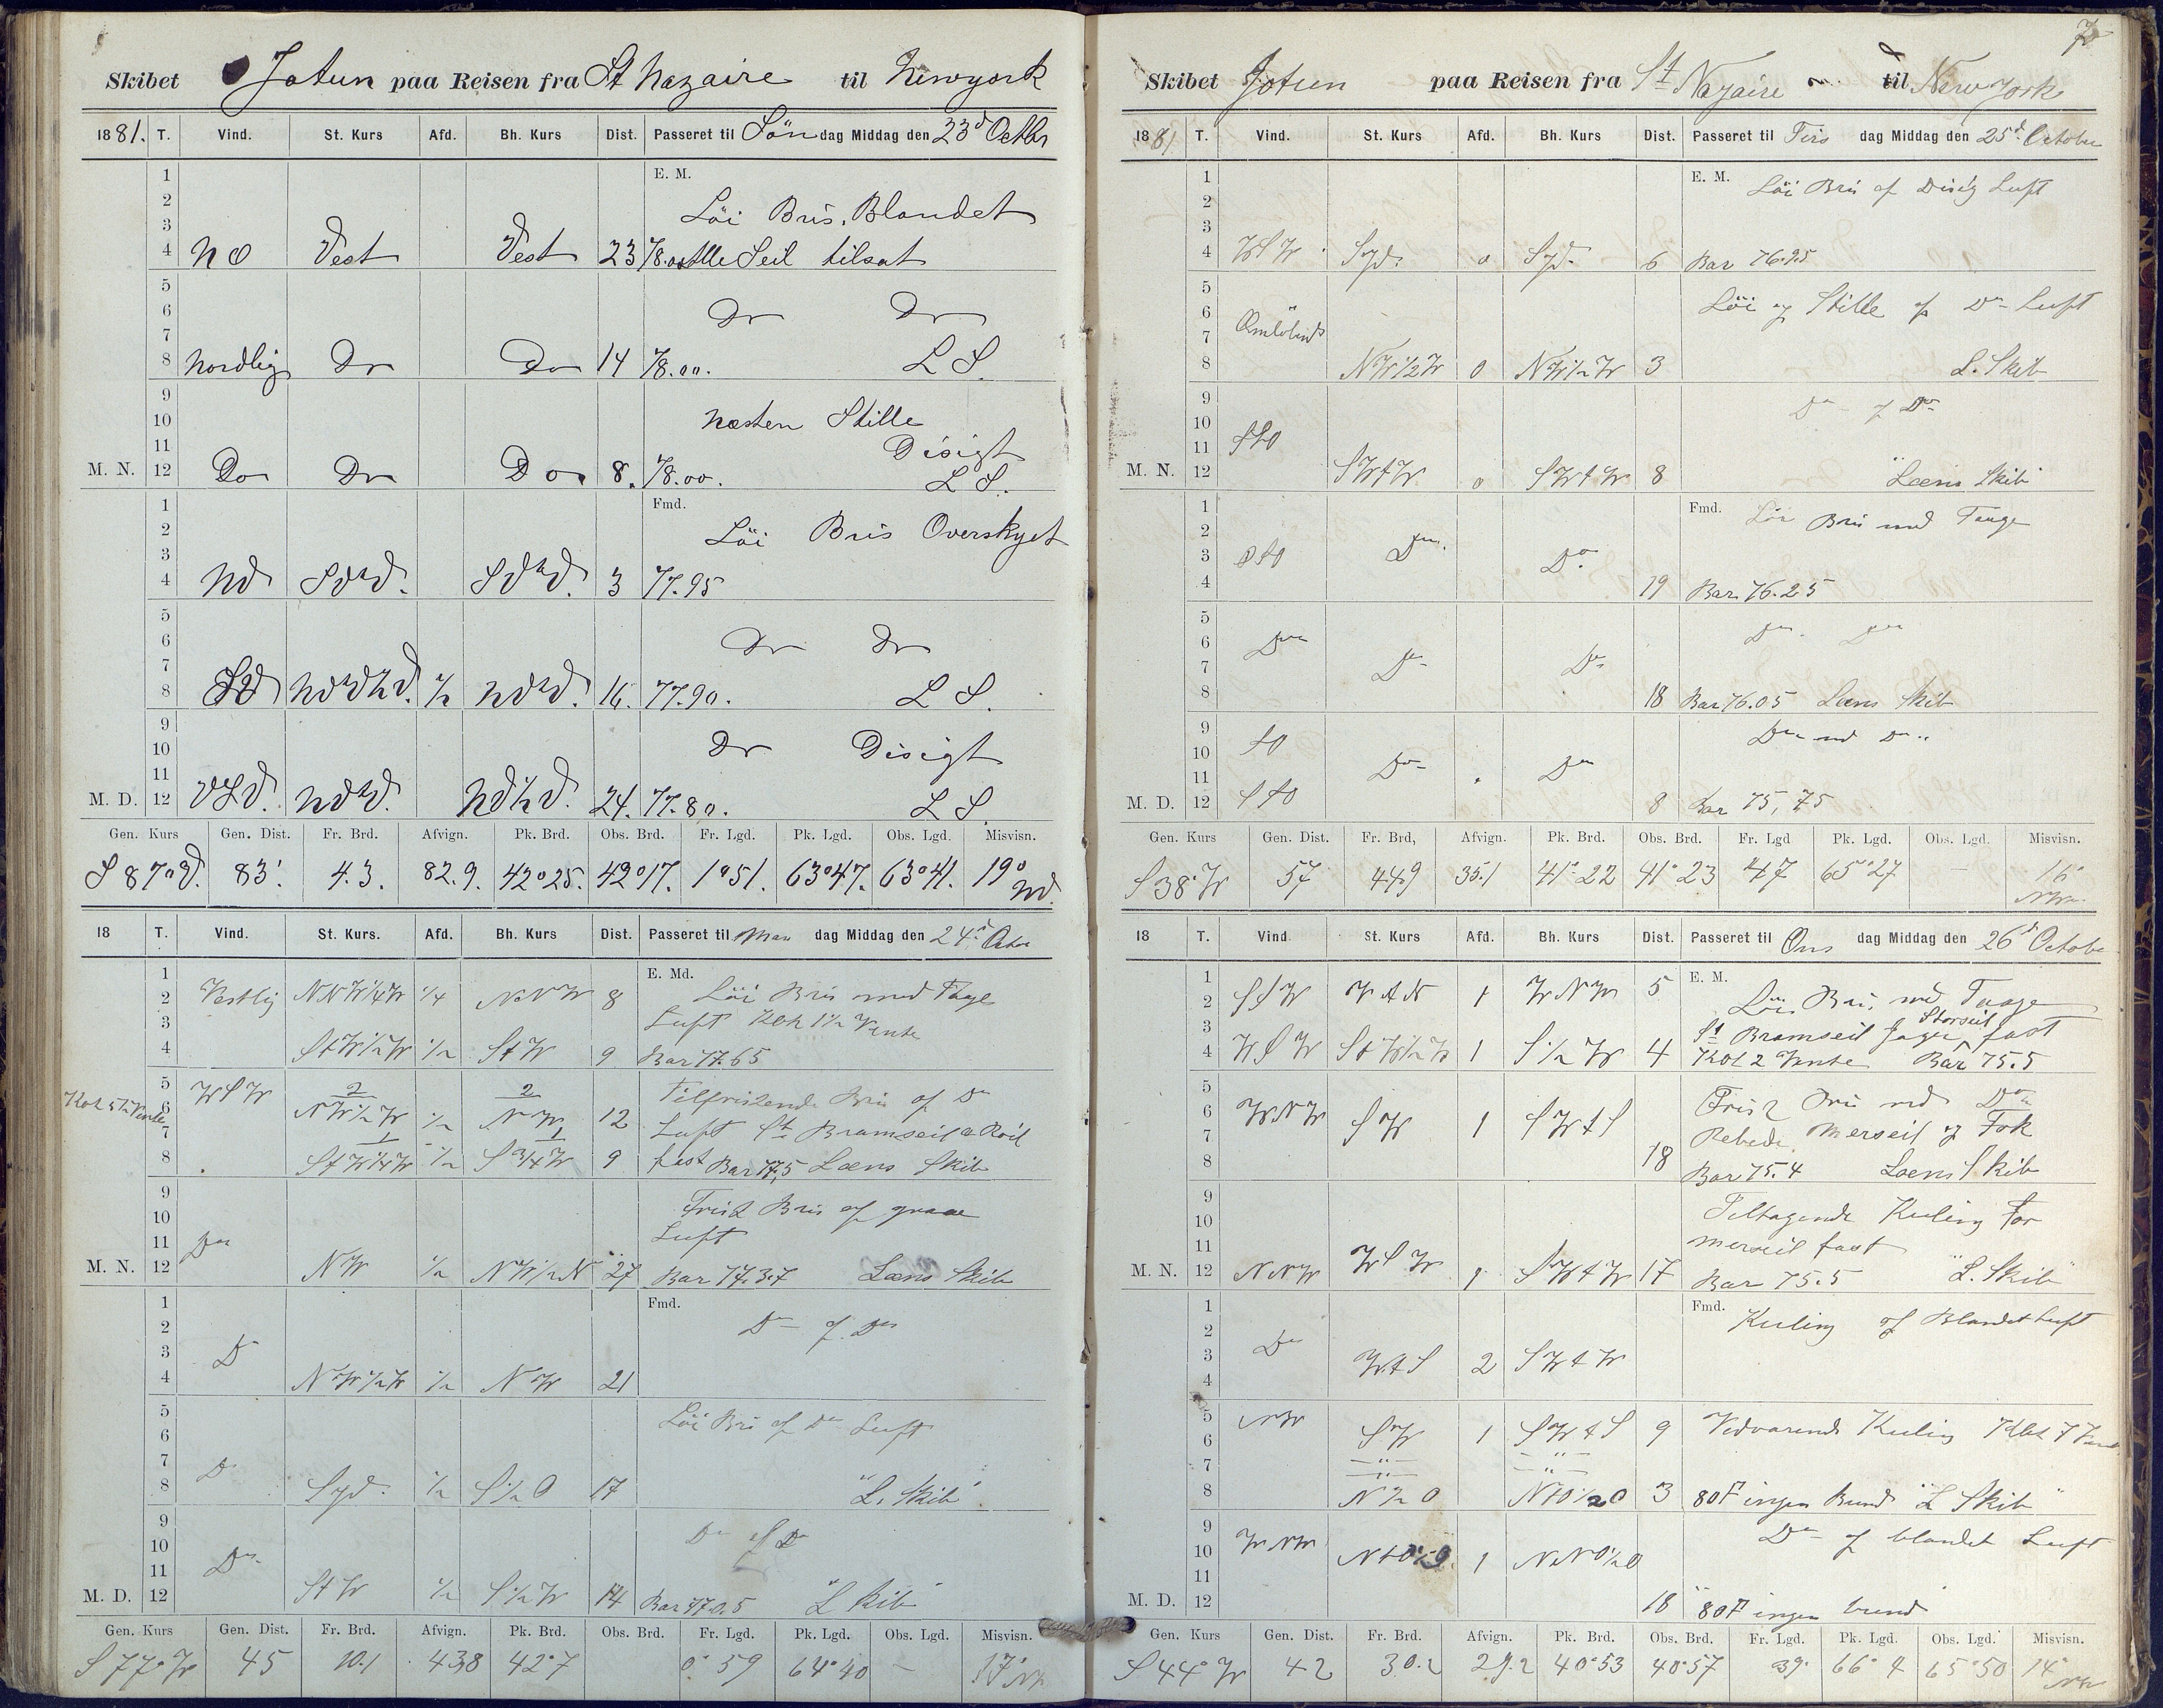 Skibet Jotun paa Reisen fra St Nazaire til Newyork
1881. T. Vind. St. Kurs Afd. Bh. Kurs Dist. Passeret til Søn dag Middag den 23d Octbr
1 E. M.
2 Löi Bris, Blandet
3
4 NO Vest Vest 23 78.00 Alle Seil tilsat
5
6 Do Do
7
8 Nordlig Do Do 14 78.00. L S.
9
10 Næsten Stille
11 Disigt
M. N. 12 Do Do Do 8. 78.00. L S.
1 Fmd.
2 Löi Bris Overskyet
3
4 3 77.95
5
6 Do Do
7
8 ½ 16. 77.90. L S.
9
10 Do Disigt
11
M. D. 12 24. 77.80. L S.
Gen. Kurs Gen. Dist. Fr. Brd. Afvign. Pk. Brd. Obs. Brd. Fr. Lgd. Pk. Lgd. Obs. Lgd. Misvisn.
S 87° V. 83'. 4.3. 82.9. 42°25. 42°17. 1°51. 63°47. 63°41. 19° NV.
18 T. Vind. St. Kurs. Afd. Bh. Kurs Dist. Passeret til Man dag Middag den 24d Octbr
1 E. Md.
2 Vestlig NNW¼W ¼ NNW 8 Löi Bris med Tage
3 Luft Klok 1½ Vente
4 StW½W ½ StW 9 Bar 77.65
5 WSW 2 2 Tilfriskende Bris af Do
Klok 5½ Vente 6 NW½W ½ NW 12
7 1 1 Luft St Bramseil & Röil
8 StW¼W ½ S¾W 9 fast Bar 77,5 Læns Skib
9 Frisk Bris af graae
10 Luft
11 Do
M. N. 12 NW ½ NW½N 27 Bar 77.37 Læns Skib
1 Fmd.
2 Do af Do
3 Do
4 NW½W ½ NW 21
5 Löi Bris af Do Luft
6
7 Do
8 Syd. ½ S½O 17 "L. Skib"
9 Do af Do
10
11 Do
M. D. 12 StW ½ S½W 14 Bar 77.0.5 "L Skib"
Gen. Kurs Gen. Dist. Fr. Brd. Afvign. Pk. Brd. Obs. Brd. Fr. Lgd. Pk. Lgd. Obs. Lgd. Misvisn.
S 77° W 45 10.1 43,8 42°7 0°59 64°40 – 17° NW
7
Skibet Jotun paa Reisen fra St Nazaire til New York
1881 T. Vind. St. Kurs Afd. Bh. Kurs Dist. Passeret til Tirs dag Middag den 25d October
1 E. M. Löi Bris af Disig Luft
2
3
4 WSW Syd. 0 Syd. 6 Bar 76.25
5 Löi og Stille af Do Luft
6 Omlöbinde
7
8 NW½W 0 NW½W 3 L. Skib
9 Do af Do
10
11 StO
M. N. 12 SWtW 0 SWtW 8 Læns Skib
1 Fmd. Löi Bris med Taage
2
3 OtO Do Do
4 19 Bar 76.25
5
6 Do Do Do
7 Do Do
8 18 Bar 76.05 Læns Skib
9 Do med Do
10 tO
11 Do Do
M. D. 12 StO 8 Bar 75,75
Gen. Kurs Gen. Dist. Fr. Brd, Afvign. Pk. Brd. Obs. Brd. Fr. Lgd Pk. Lgd. Obs. Lgd. Misvisn.
S 38° W 57 44,9 35.1 41°22 41°23 47 65°27 – 16° NW
18 T. Vind St. Kurs Afd. Bh. Kurs Dist. Passeret til Ons dag Middag den 26d October
1 SSW WtN 1 WNW 5 E. M.
2 Löi Bris med Taage
3 Storseil
4 WSW StW½W 1 S½W 4 St Bramseil Jager fast
Klok 2 Vente Bar 75.5
5 Frisk Bris med Do
6 WNW SW 1 SWtS Rebede Merseil og Fok
7
8 18 Bar 75.4 Læns Skib
9 Tiltagende Kuling For
10 merseil fast
11
M. N. 12 NNW WSW 1 SWtW 17 Bar 75.5 "L. Skib"
1 Fmd. Kuling af Blandet Luft
2
3 Do WtS 2 SWtW
4
5 NW SW 1 SWtS 9 Vedvarende Kuling Klok 7
6
7
8 N½O NtO½O 3 80 F ingen Bund "L Skib"
9 Do af blandet Luft
10 WNW 1 NNO½O
11
M. D. 12 18 80 F ingen bund
Gen. Kurs Gen. Dist. Fr. Brd. Afvign. Pk. Brd. Obs. Brd. Fr. Lgd. Pk. Lgd. Obs. Lgd. Misvisn.
S 44° W 42 30.2 29.2 40°53 40°57 39. 66°4 65°50 14° NW